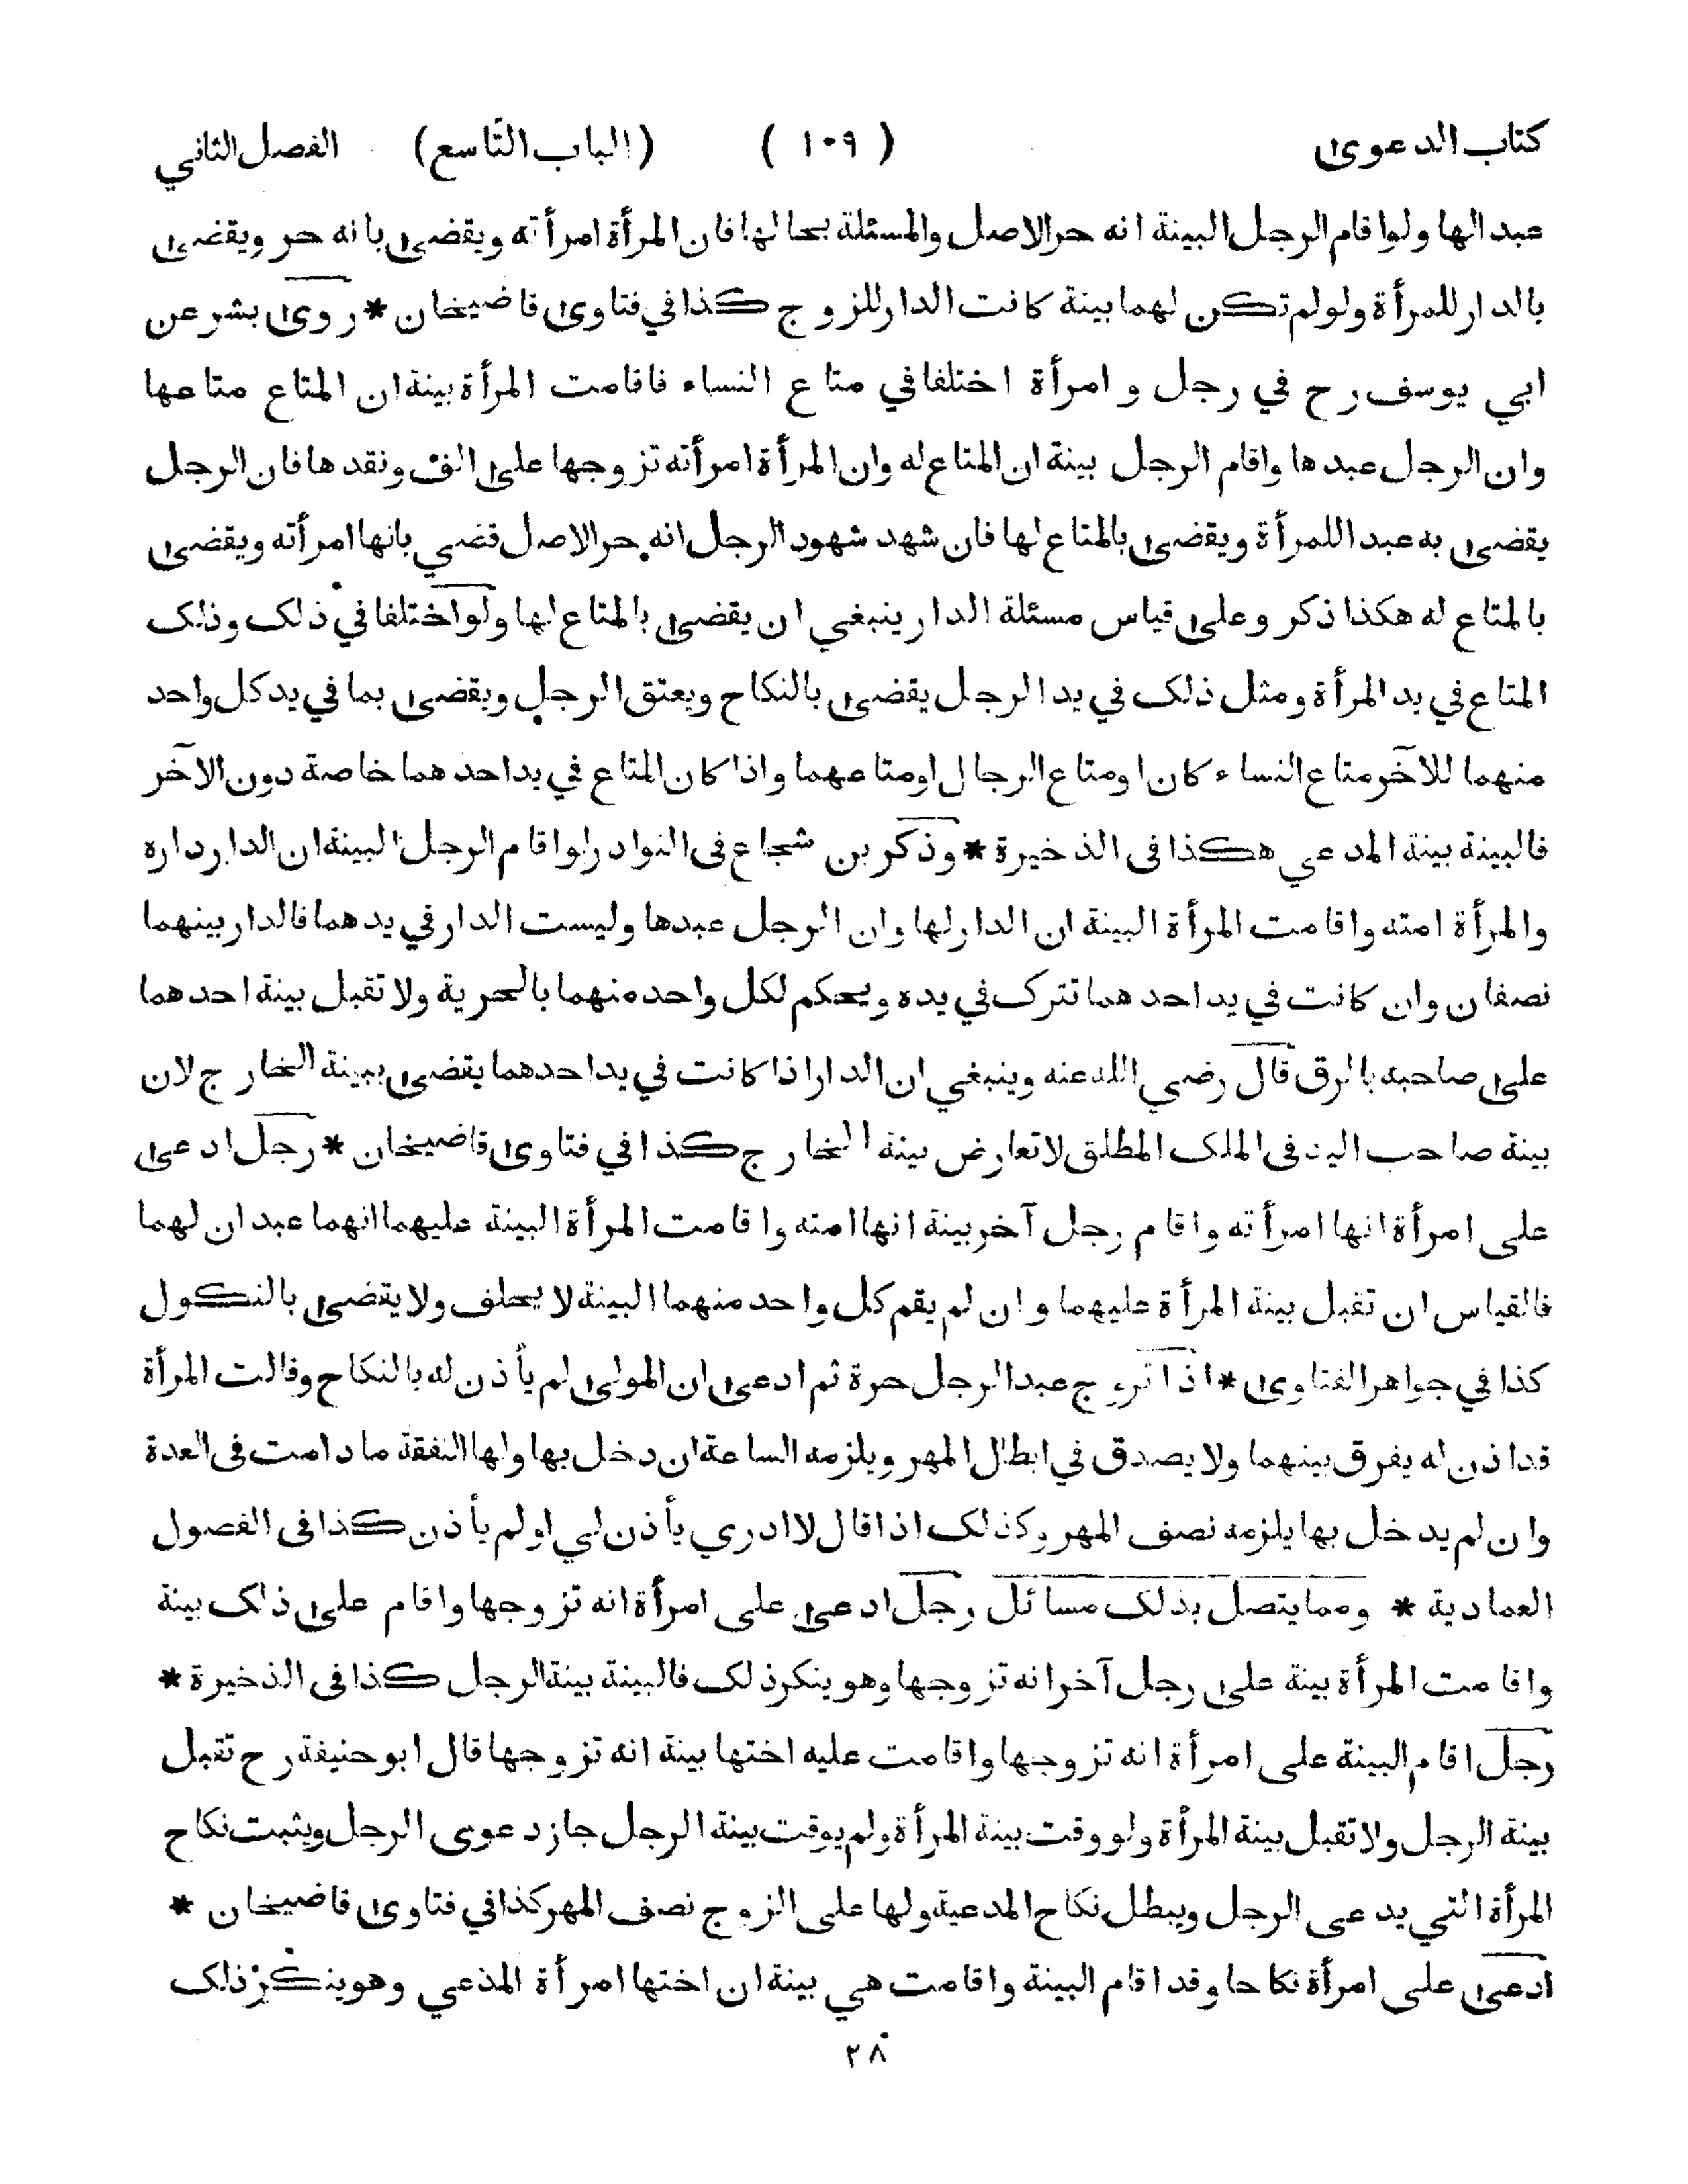 كتاب الدعوى ( ١٠٩ ) (الباب التاسع) الفصل الثاني
عبدالها ولو اقام الرجل البينة انه حر الاصل والمسئلة بحالها فان المرأة امرأته ويقضى بانه حر ويقضى
بالدار للمرأة ولو لم تكن لهما بينة كانت الدار للزوج كذا في فتاوى قاضيخان * روى بشر عن
ابي يوسف رح في رجل و امرأة اختلفا في متاع النساء فاقامت المرأة بينة ان المتاع متاعها
وان الرجل عبدها واقام الرجل بينة ان المتاع له وان المرأة امرأته تزوجها على الف ونقدها فان الرجل
يقضى به عبدا للمرأة ويقضى بالمتاع لها فان شهد شهود الرجل انه حر الاصل قضي بانها امرأته ويقضى
بالمتاع له هكذا ذكر وعلى قياس مسئلة الدار ينبغي ان يقضى بالمتاع لها ولو اختلفا في ذلك وذلك
المتاع في يد المرأة ومثل ذلك في يد الرجل يقضى بالنكاح ويعتق الرجل ويقضى بما في يد كل واحد
منهما للآخر متاع النساء كان او متاع الرجال او متاعهما واذا كان المتاع في يد احدهما خاصة دون الآخر
فالبينة بينة المدعي هكذا فى الذخيرة * وذكر بن شجاع فى النوادر لو اقام الرجل البينة ان الدار داره
والمرأة امته واقامت المرأة البينة ان الدار لها وان الرجل عبدها وليست الدار في يدهما فالدار بينهما
نصفان وان كانت في يد احدهما تترك في يده ويحكم لكل واحد منهما بالحرية ولا تقبل بينة احدهما
على صاحبه بالرق قال رضي الله عنه وينبغي ان الدار اذا كانت في يد احدهما يقضى ببينة الخارج لان
بينة صاحب اليد فى الملك المطلق لا تعارض بينة الخارج كذا في فتاوى قاضيخان * رجل ادعى
على امرأة انها امرأته واقام رجل آخر بينة انها امته واقامت المرأة البينة عليهما انهما عبدان لهما
فالقياس ان تقبل بينة المرأة عليهما وان لم يقم كل واحد منهما البينة لا يحلف ولا يقضى بالنكول
كذا في جواهر الفتاوى * اذا تزوج عبد الرجل حرة ثم ادعى ان المولى لم يأذن له بالنكاح وقالت المرأة
قد اذن له يفرق بينهما ولا يصدق في ابطال المهر ويلزمه الساعة ان دخل بها ولها النفقة ما دامت فى العدة
وان لم يدخل بها يلزمه نصف المهر وكذلك اذا قال لا ادري يأذن لي او لم يأذن كذا فى الفصول
العمادية * ومما يتصل بذلك مسائل رجل ادعى على امرأة انه تزوجها واقام على ذلك بينة
واقامت المرأة بينة على رجل آخر انه تزوجها وهو ينكر ذلك فالبينة بينة الرجل كذا فى الذخيرة *
رجل اقام البينة على امرأة انه تزوجها واقامت عليه اختها بينة انه تزوجها قال ابو حنيفة رح تقبل
بينة الرجل ولا تقبل بينة المرأة ولو وقت بينة المرأة ولم يوقت بينة الرجل جاز دعوى الرجل ويثبت نكاح
المرأة التي يدعى الرجل ويبطل نكاح المدعية ولها على الزوج نصف المهر كذا في فتاوى قاضيخان *
ادعى على امرأة نكاحا وقد اقام البينة واقامت هي بينة ان اختها امرأة المدعي وهو ينكر ذلك
٢٨